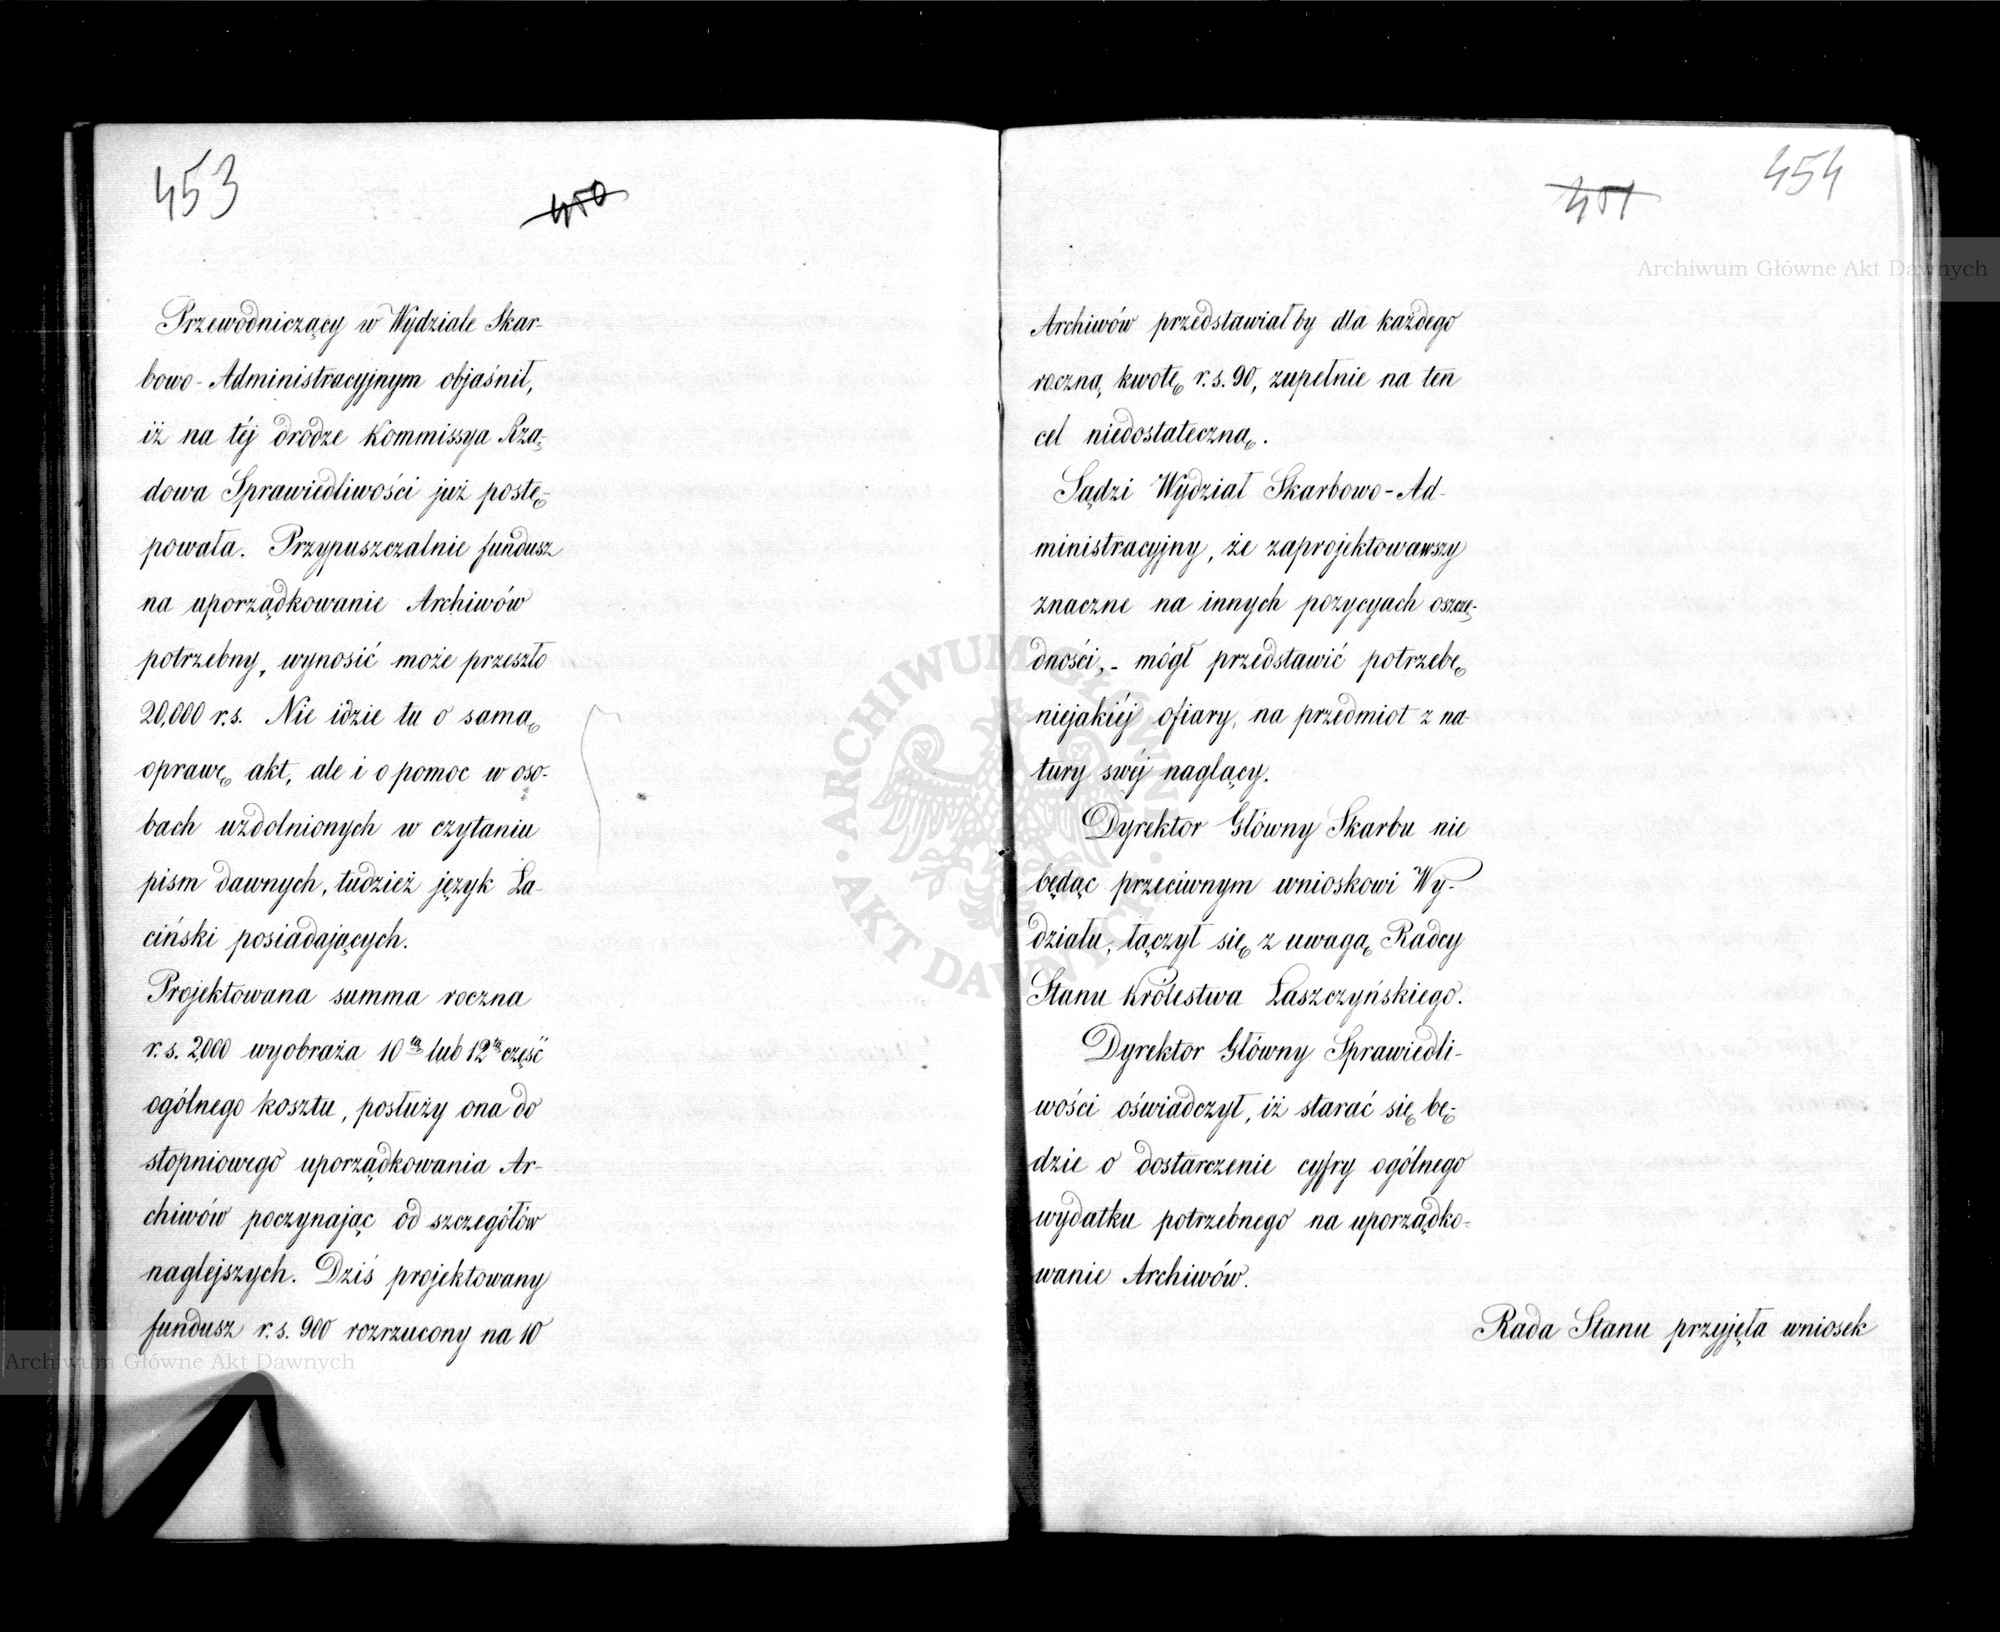 453
450
Przewodniczący w Wydziale Skar-
bowo-Administracyjnym objaśnił,
iż na téj drodze Kommissya Rzą-
dowa Sprawiedliwości już postę-
powała. Przypuszczalnie fundusz
na uporządkowanie Archiwów
potrzebny, wynosić może przeszło
20,000 r.s. Nie idzie tu o samą
oprawę akt, ale i o pomoc w oso-
bach uzdolnionych w czytaniu
pism dawnych, tudzież język Ła-
ciński posiadających.
Projektowana summa roczna
r.s. 2,000 wyobraża 10tą lub 12tą część
ogólnego kosztu, posłuży ona do
stopniowego uporządkowania Ar-
chiwów poczynając od szczegółów
naglejszych. Dziś projektowany
fundusz r.s. 900 rozrzucony na 10
454
451
Archiwów przedstawiałby dla każdego
roczną kwotę r.s. 90, zupełnie na ten
cel niedostateczną.
Sądzi Wydział Skarbowo-Ad-
ministracyjny, że zaprojektowawszy
znaczne na innych pozycyach oszczę-
dności, - mógł przedstawić potrzebę
niejakiéj ofiary, na przedmiot z na-
tury swéj naglący.
Dyrektor Główny Skarbu nie
będąc przeciwnym wnioskowi Wy-
działu, łączył się z uwagą Radcy
Stanu Królestwa Łaszczyńskiego.
Dyrektor Główny Sprawiedli-
wości oświadczył, iż starać się bę-
dzie o dostarczenie cyfry ogólnego
wydatku potrzebnego na uporządko-
wanie Archiwów.
Rada Stanu przyjęła wniosek
Archiwum Główne Akt Dawnych
Archiwum Główne Akt Dawnych
ARCHIWUM GŁÓWNE
AKT DAWNYCH